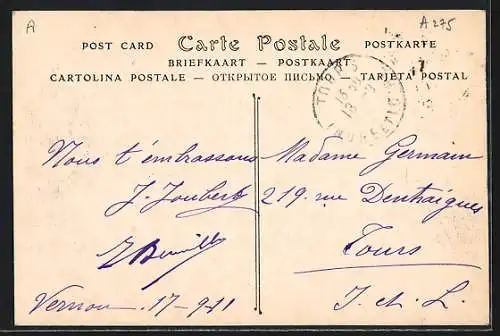 A
A 275
POST CARD Carte Postale POSTKARTE
BRIEFKAART — POSTKAART
CARTOLINA POSTALE — ОТКРЫТОЕ ПИСЬМО — TARJETA POSTAL
Nous t'embrassons
J. Joubert
Vernou 17-9-11
Madame Germain
219 rue Dentaigues
Tours
I. et L.